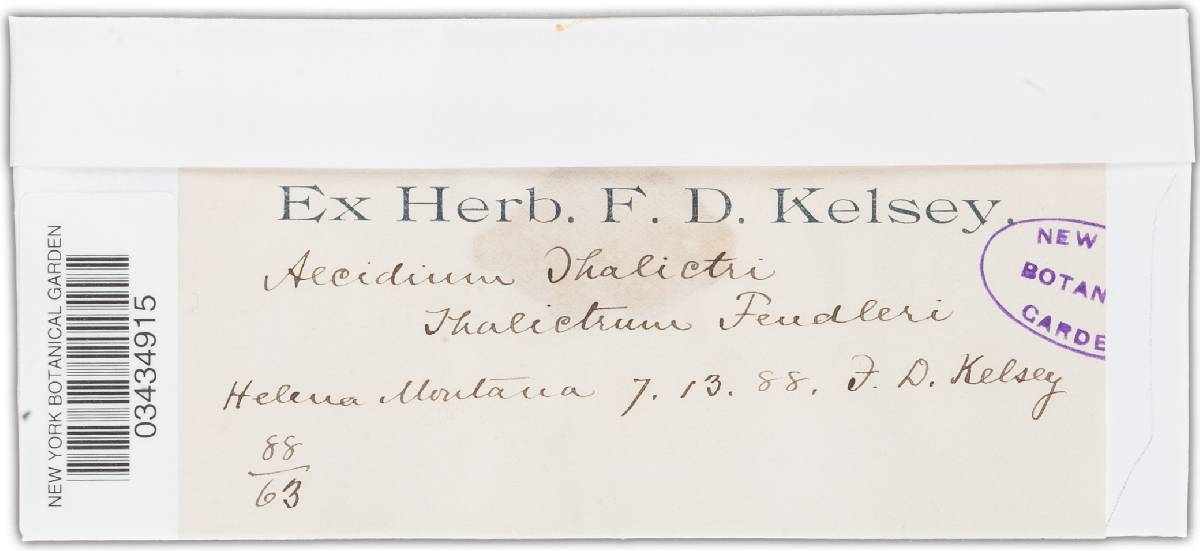 Ex Herb. F. D. Kelsey.
Aecidium Thalictri
Thalictrum Fendleri
Helena Montana 7. 13. 88. F. D. Kelsey
88
63
NEW
BOTAN
GARDE
NEW YORK BOTANICAL GARDEN
03434915